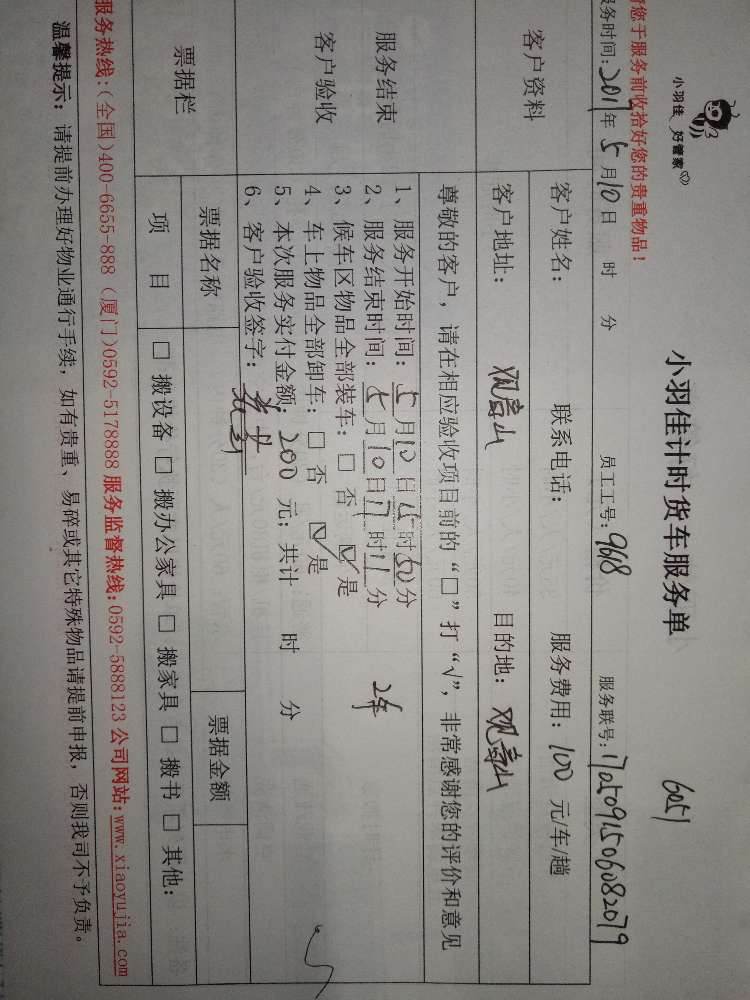 小羽佳 好管家
小羽佳计时货车服务单
6051
您于服务前收拾好您的贵重物品!
务时间: 2017年 5月10日 时 分 员工工号: 9618 服务联号: 1705091506082079
客户资料
客户姓名: 联系电话: 服务费用: 100 元/车/趟
客户地址: 观音山 目的地: 观音山
尊敬的客户, 请在相应验收项目前的“□”打“√”, 非常感谢您的评价和意见
服务结束
客户验收
1、服务开始时间: 5月10日15时50分
2、服务结束时间: 5月10日17时11分 2车
3、候车区物品全部装车: □ 否 ☑ 是
4、车上物品全部卸车: □ 否 ☑ 是
5、本次服务实付金额: 200 元; 共计 时 分
6、客户验收签字:
票据栏
票据名称 票据金额
项 目 □ 搬设备 □ 搬办公家具 □ 搬家具 □ 搬书 □ 其他:
服务热线:(全国)400-6655-888 (厦门)0592-5178888 服务监督热线:0592-5888123 公司网站:www.xiaoyujia.com
温馨提示: 请提前办理好物业通行手续, 如有贵重、易碎或其它特殊物品请提前申报, 否则我司不予负责。